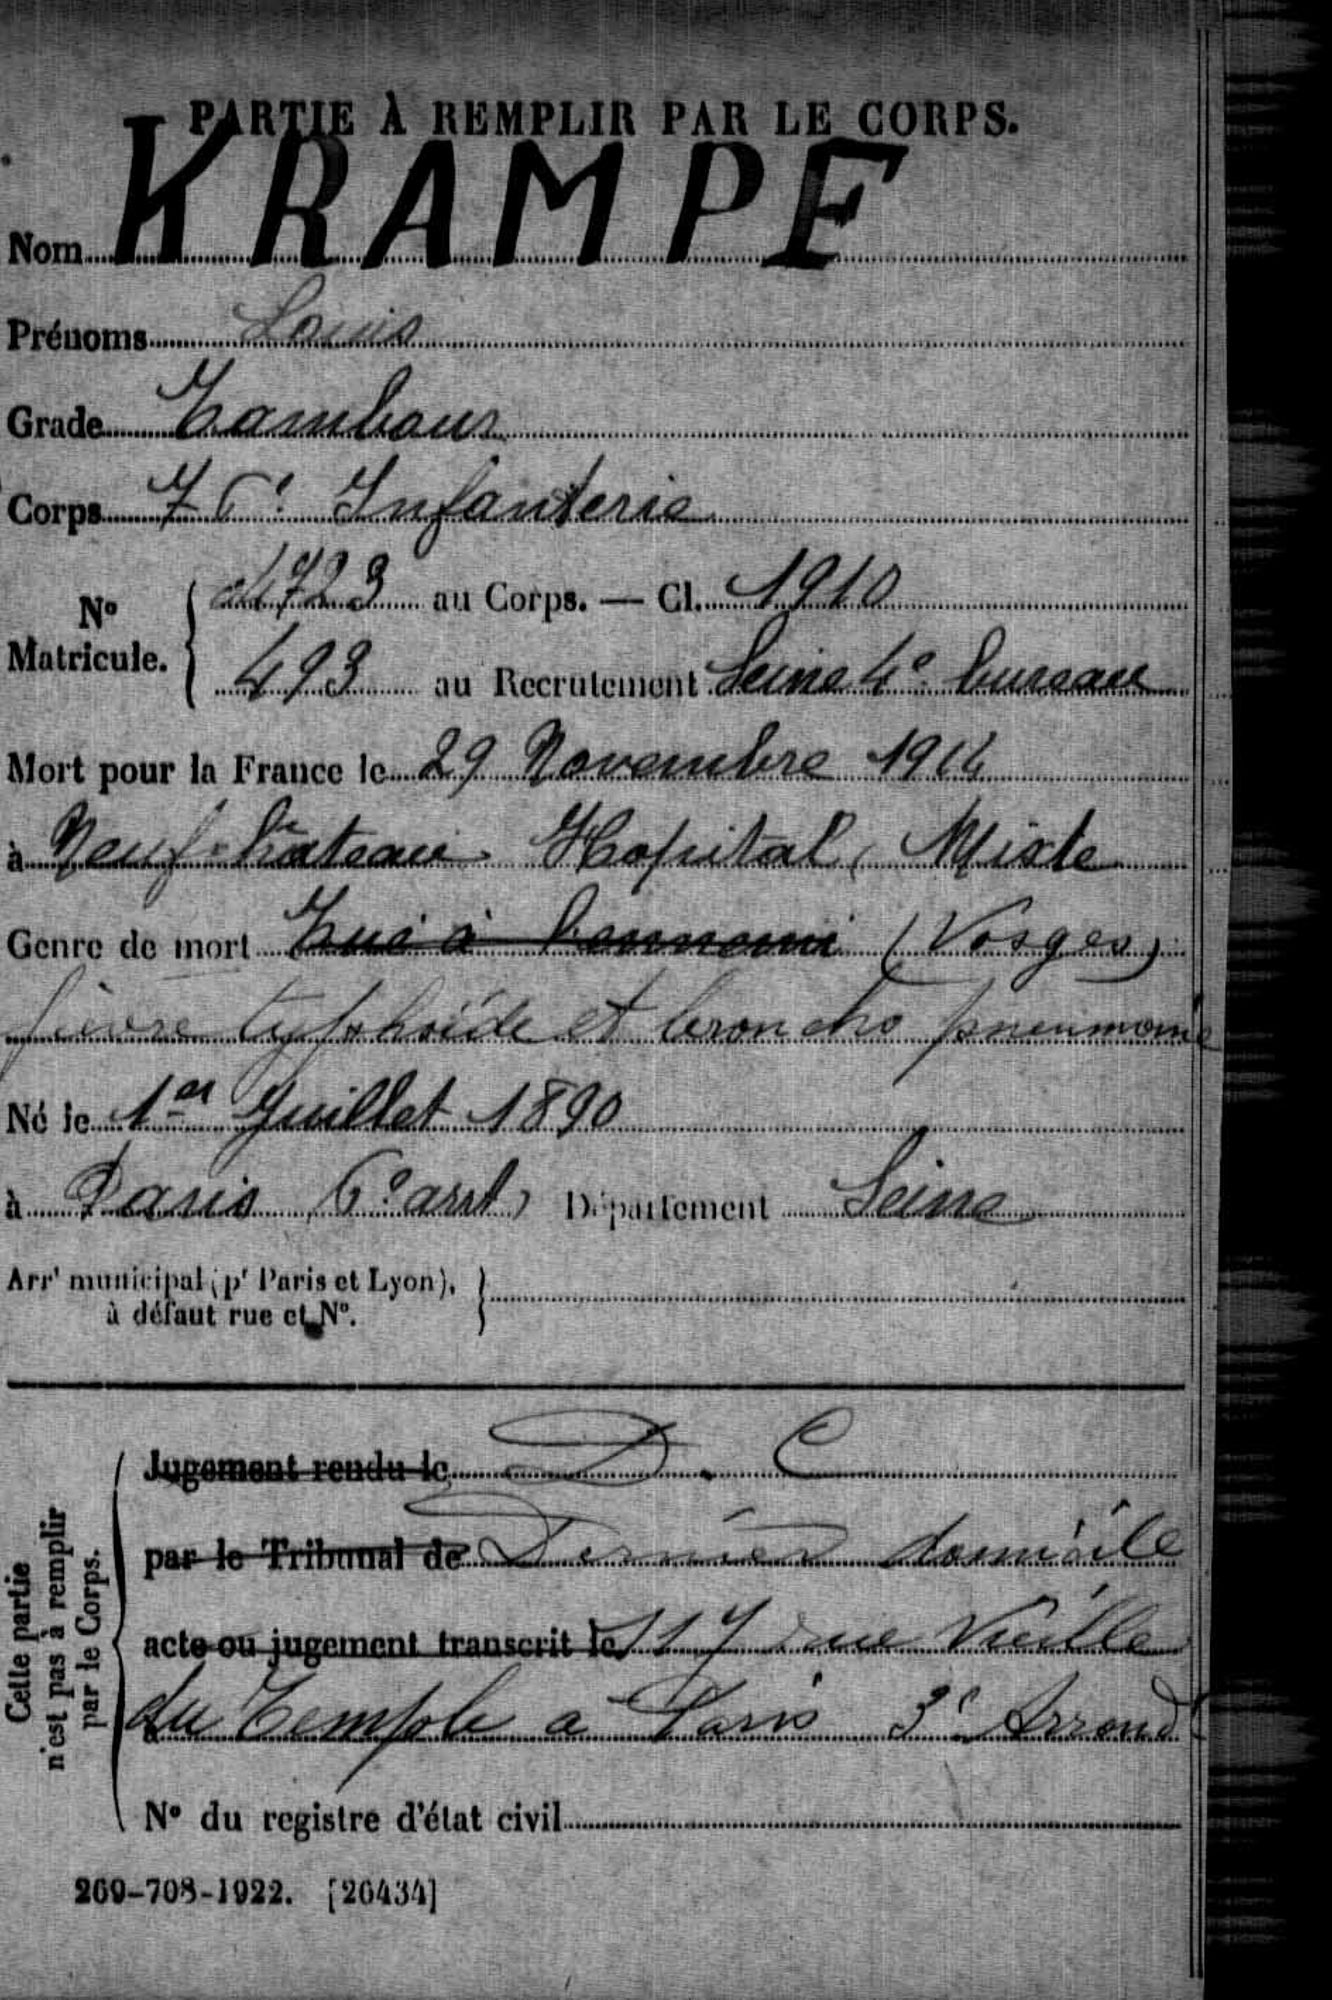 PARTIE À REMPLIR PAR LE CORPS.
Nom KRAMPE
Prénoms Louis
Grade Tambour
Corps 76e Infanterie
No Matricule. { 4723 au Corps. — Cl. 1910
493 au Recrutement Seine 4e bureau
Mort pour la France le 29 Novembre 1914
à Neufchâteau Hopital Mixte
Genre de mort Tué à l'ennemi (Vosges)
fièvre typhoïde et broncho pneumonie
Né le 1er Juillet 1890
à Paris 6e arrt) Département Seine
Arrt municipal (pr Paris et Lyon), }
à défaut rue et No.
Cette partie n'est pas à remplir par le Corps.
Jugement rendu le D. C
par le Tribunal de Dernier domicile
acte ou jugement transcrit le 117 rue Vieille
du Temple a Paris 3e Arrond
No du registre d'état civil
269-708-1922. [26434]